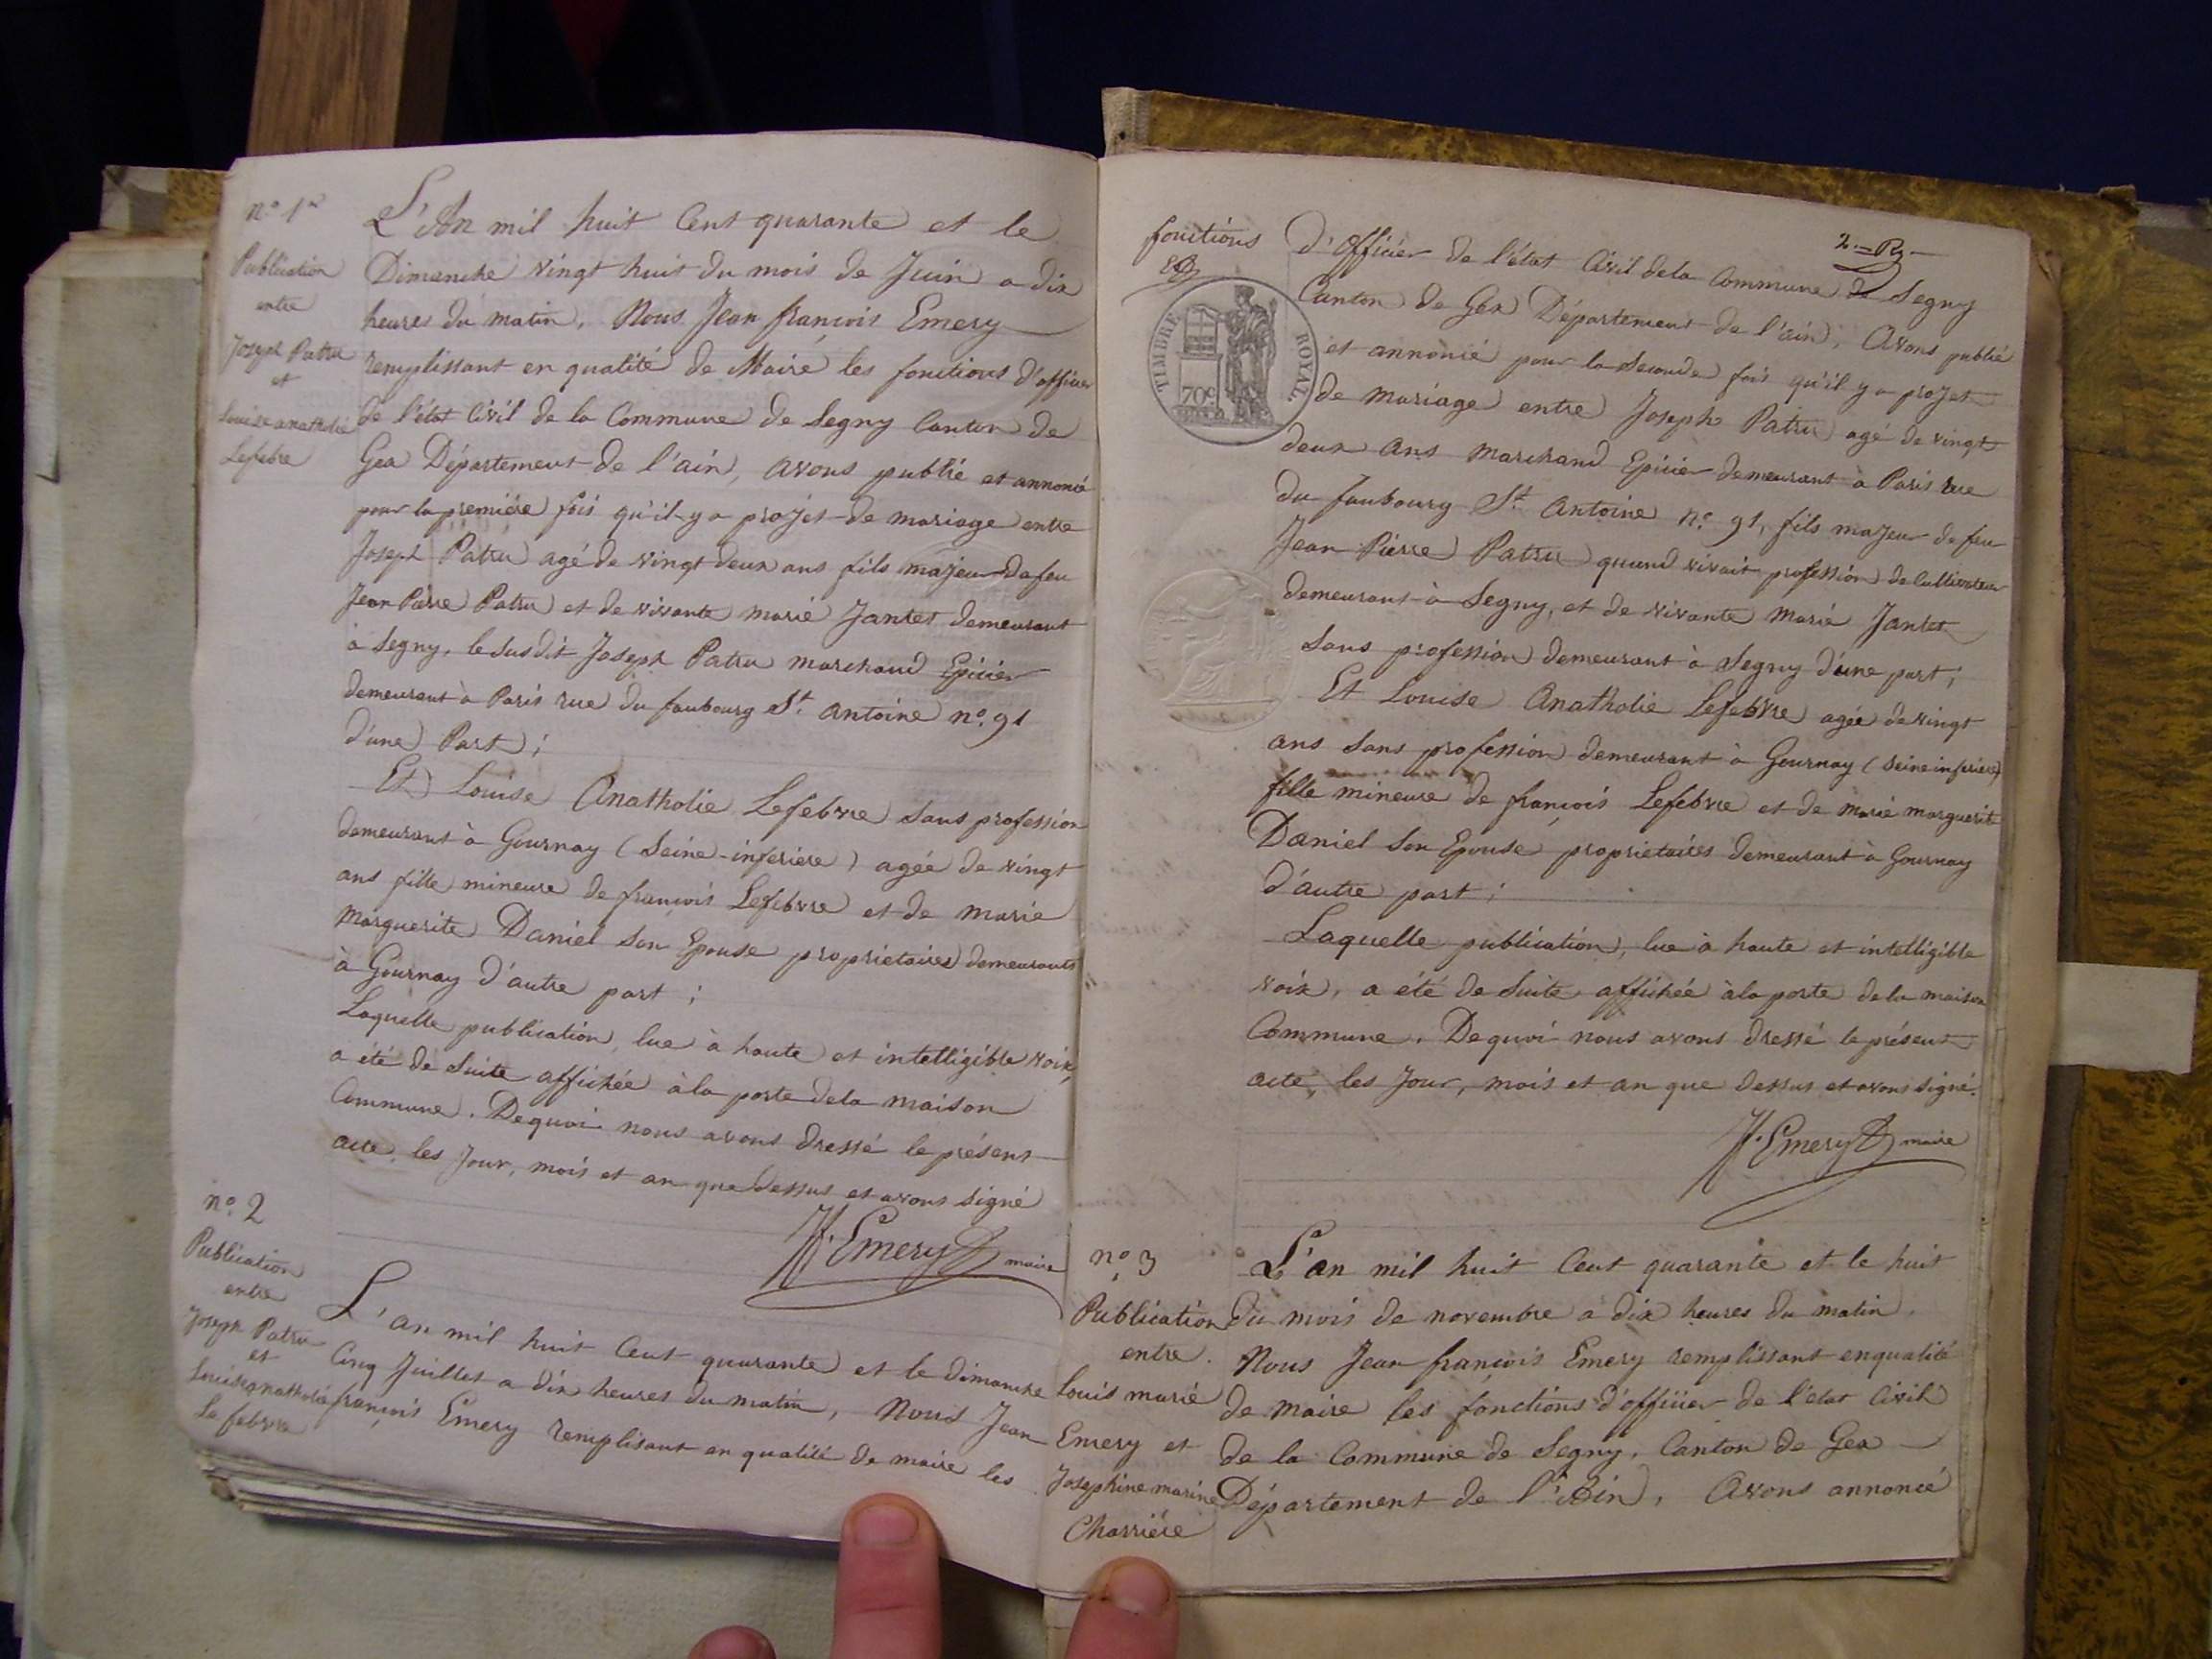 n.o 1er
Publication
entre
Joseph Patru
et
Louise anatholie
Lefebre
L'An mil huit Cent quarante et le
Dimanche vingt huit du mois de Juin a dix
heures du matin, Nous Jean françois Emery
remplissant en qualité de Maire les fonctions d'officier
de l'état Civil de la Commune de Segny Canton de
Gex Département de l'ain, avons publié et annoncé
pour la première fois qu'il y a projet de mariage entre
Joseph Patru agé de vingt deux ans fils majeur de feu
Jean Pierre Patru et de vivante marie Jantet demeurant
à Segny, le susdit Joseph Patru marchand Epicier
demeurant à Paris rue du faubourg St. antoine n.o 91
d'une Part;
Et Louise Anatholie Lefebvre sans profession
demeurant à Gournay (Seine-inferiere) agée de vingt
ans fille mineure de françois Lefebvre et de marie
Marguerite Daniel son Epouse proprietaires demeurants
à Gournay d'autre part;
Laquelle publication, lue à haute et intelligible voix,
a été de Suite affichée à la porte de la maison
Commune. De quoi nous avons dressé le présent
acte, les Jour, mois et an que dessus et avons signé
Jf. Emery maire
n.o 2
Publication
entre
Joseph Patru
et
Louise anatholie
Lefebvre
L'an mil huit Cent quarante et le dimanche
Cinq Juillet a dix heures du matin, Nous Jean
françois Emery remplisant en qualité de maire les
2.e R
fonctions d'Officier de l'état Civil de la Commune de Segny
Canton de Gex Département de l'ain, Avons publié
et annoncé pour la Seconde fois qu'il y a projet
de mariage entre Joseph Patru agé de vingt
deux ans marchand Epicier demeurant à Paris rue
du faubourg St. Antoine n.o 91, fils majeur de feu
Jean Pierre Patru quand vivait profession de Cultivateur
demeurant à Segny, et de vivante Marie Jantet
sans profession demeurant à Segny d'une part;
Et Louise Anatholie Lefebvre agée de vingt
ans sans profession demeurant à Gournay (Seine inferiere)
fille mineure de françois Lefebvre et de marie marguerite
Daniel son Epouse proprietaires demeurant à Gournay
d'autre part;
Laquelle publication, lue à haute et intelligible
voix, a été de Suite affichée à la porte de la maison
Commune. De quoi nous avons dressé le présent
acte, les Jour, mois et an que dessus et avons signé.
Jf. Emery maire
TIMBRE ROYAL
70c
n.o 3
Publication
entre
Louis marie
Emery et
Josephine marine
Charrière
L'an mil huit Cent quarante et le huit
du mois de novembre a dix heures du matin.
Nous Jean françois Emery remplissant en qualité
de maire les fonctions d'officier de l'état Civil
de la Commune de Segny, Canton de Gex
Département de l'Ain, Avons annoncé